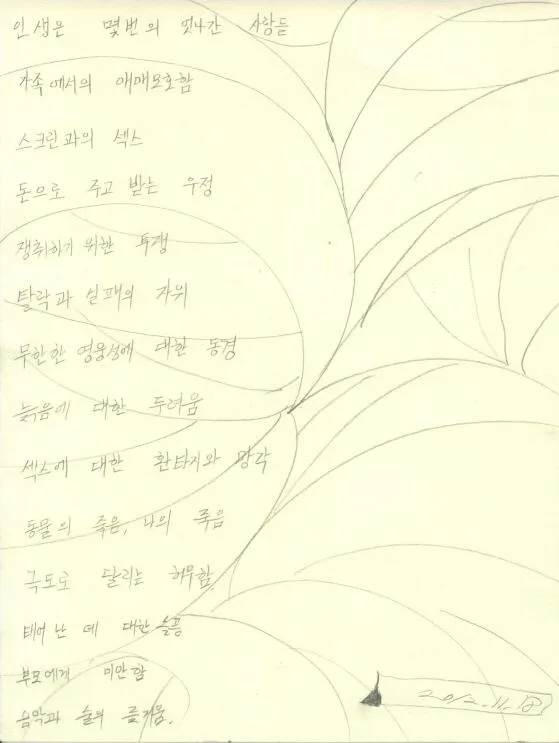 인생은 몇번의 엇나간 사랑들
가족에서의 애매모호함
스크린과의 섹스
돈으로 주고 받는 우정
쟁취하기 위한 투쟁
탈락과 실패의 자위
무한한 영웅성에 대한 동경
늙음에 대한 두려움
섹스에 대한 환타지와 망각
동물의 죽은, 나의 죽음
극도로 달리는 허무함.
태어 난 데 대한 슬픔
부모에게 미안함
음악과 술의 즐거움.
2012.11.